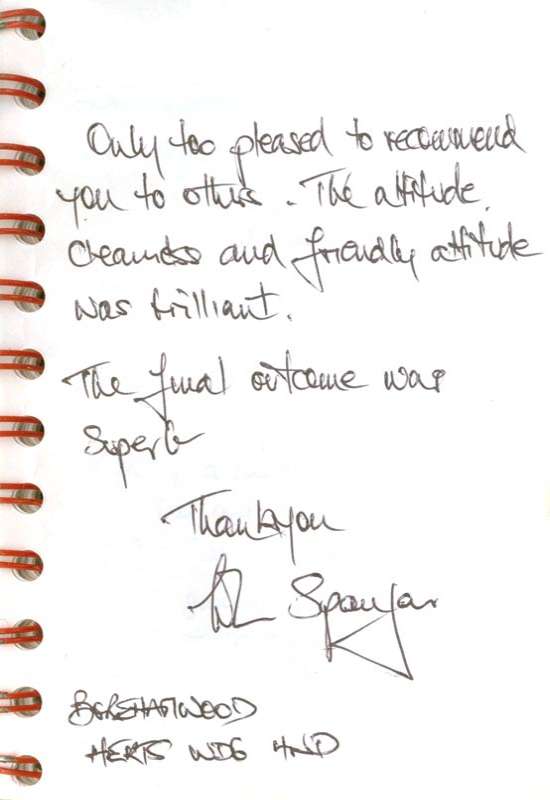 Only too pleased to recommend
you to others. The attitude,
cleaness and friendly attitude
was brilliant.
The final outcome was
Superb
Thankyou
Spanyar
BOREHAMWOOD
HERTS WD6 4ND